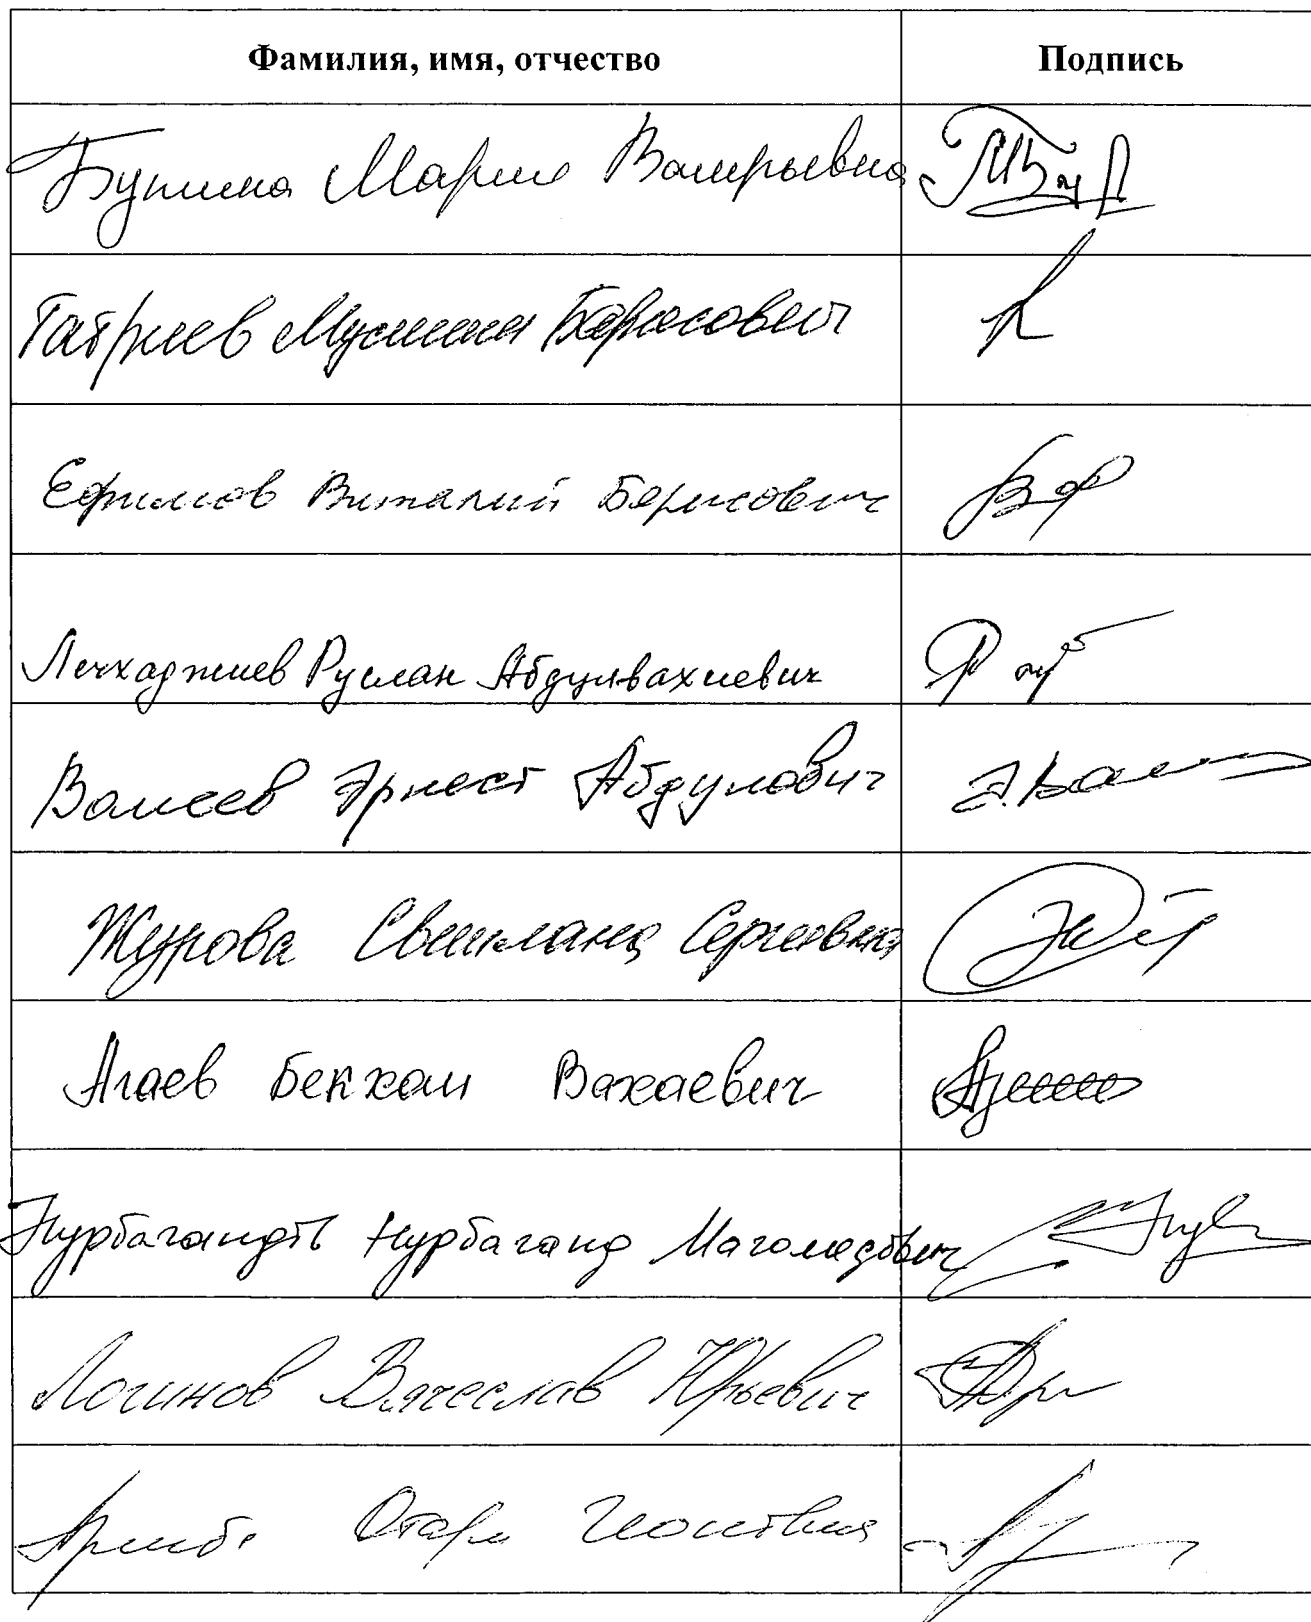 Фамилия, имя, отчество Подпись
Бутина Мария Валерьевна
Габриев Муслим Барисович
Ефимов Виталий Борисович
Лечхаджиев Руслан Абдулвахиевич
Валеев Эрнест Абдулович
Журова Светлана Сергеевна Жур
Агаев Бекхан Вахаевич
Нурбаганд Магомедович
Логинов Вячеслав Юрьевич
Аршба Отари Ионович